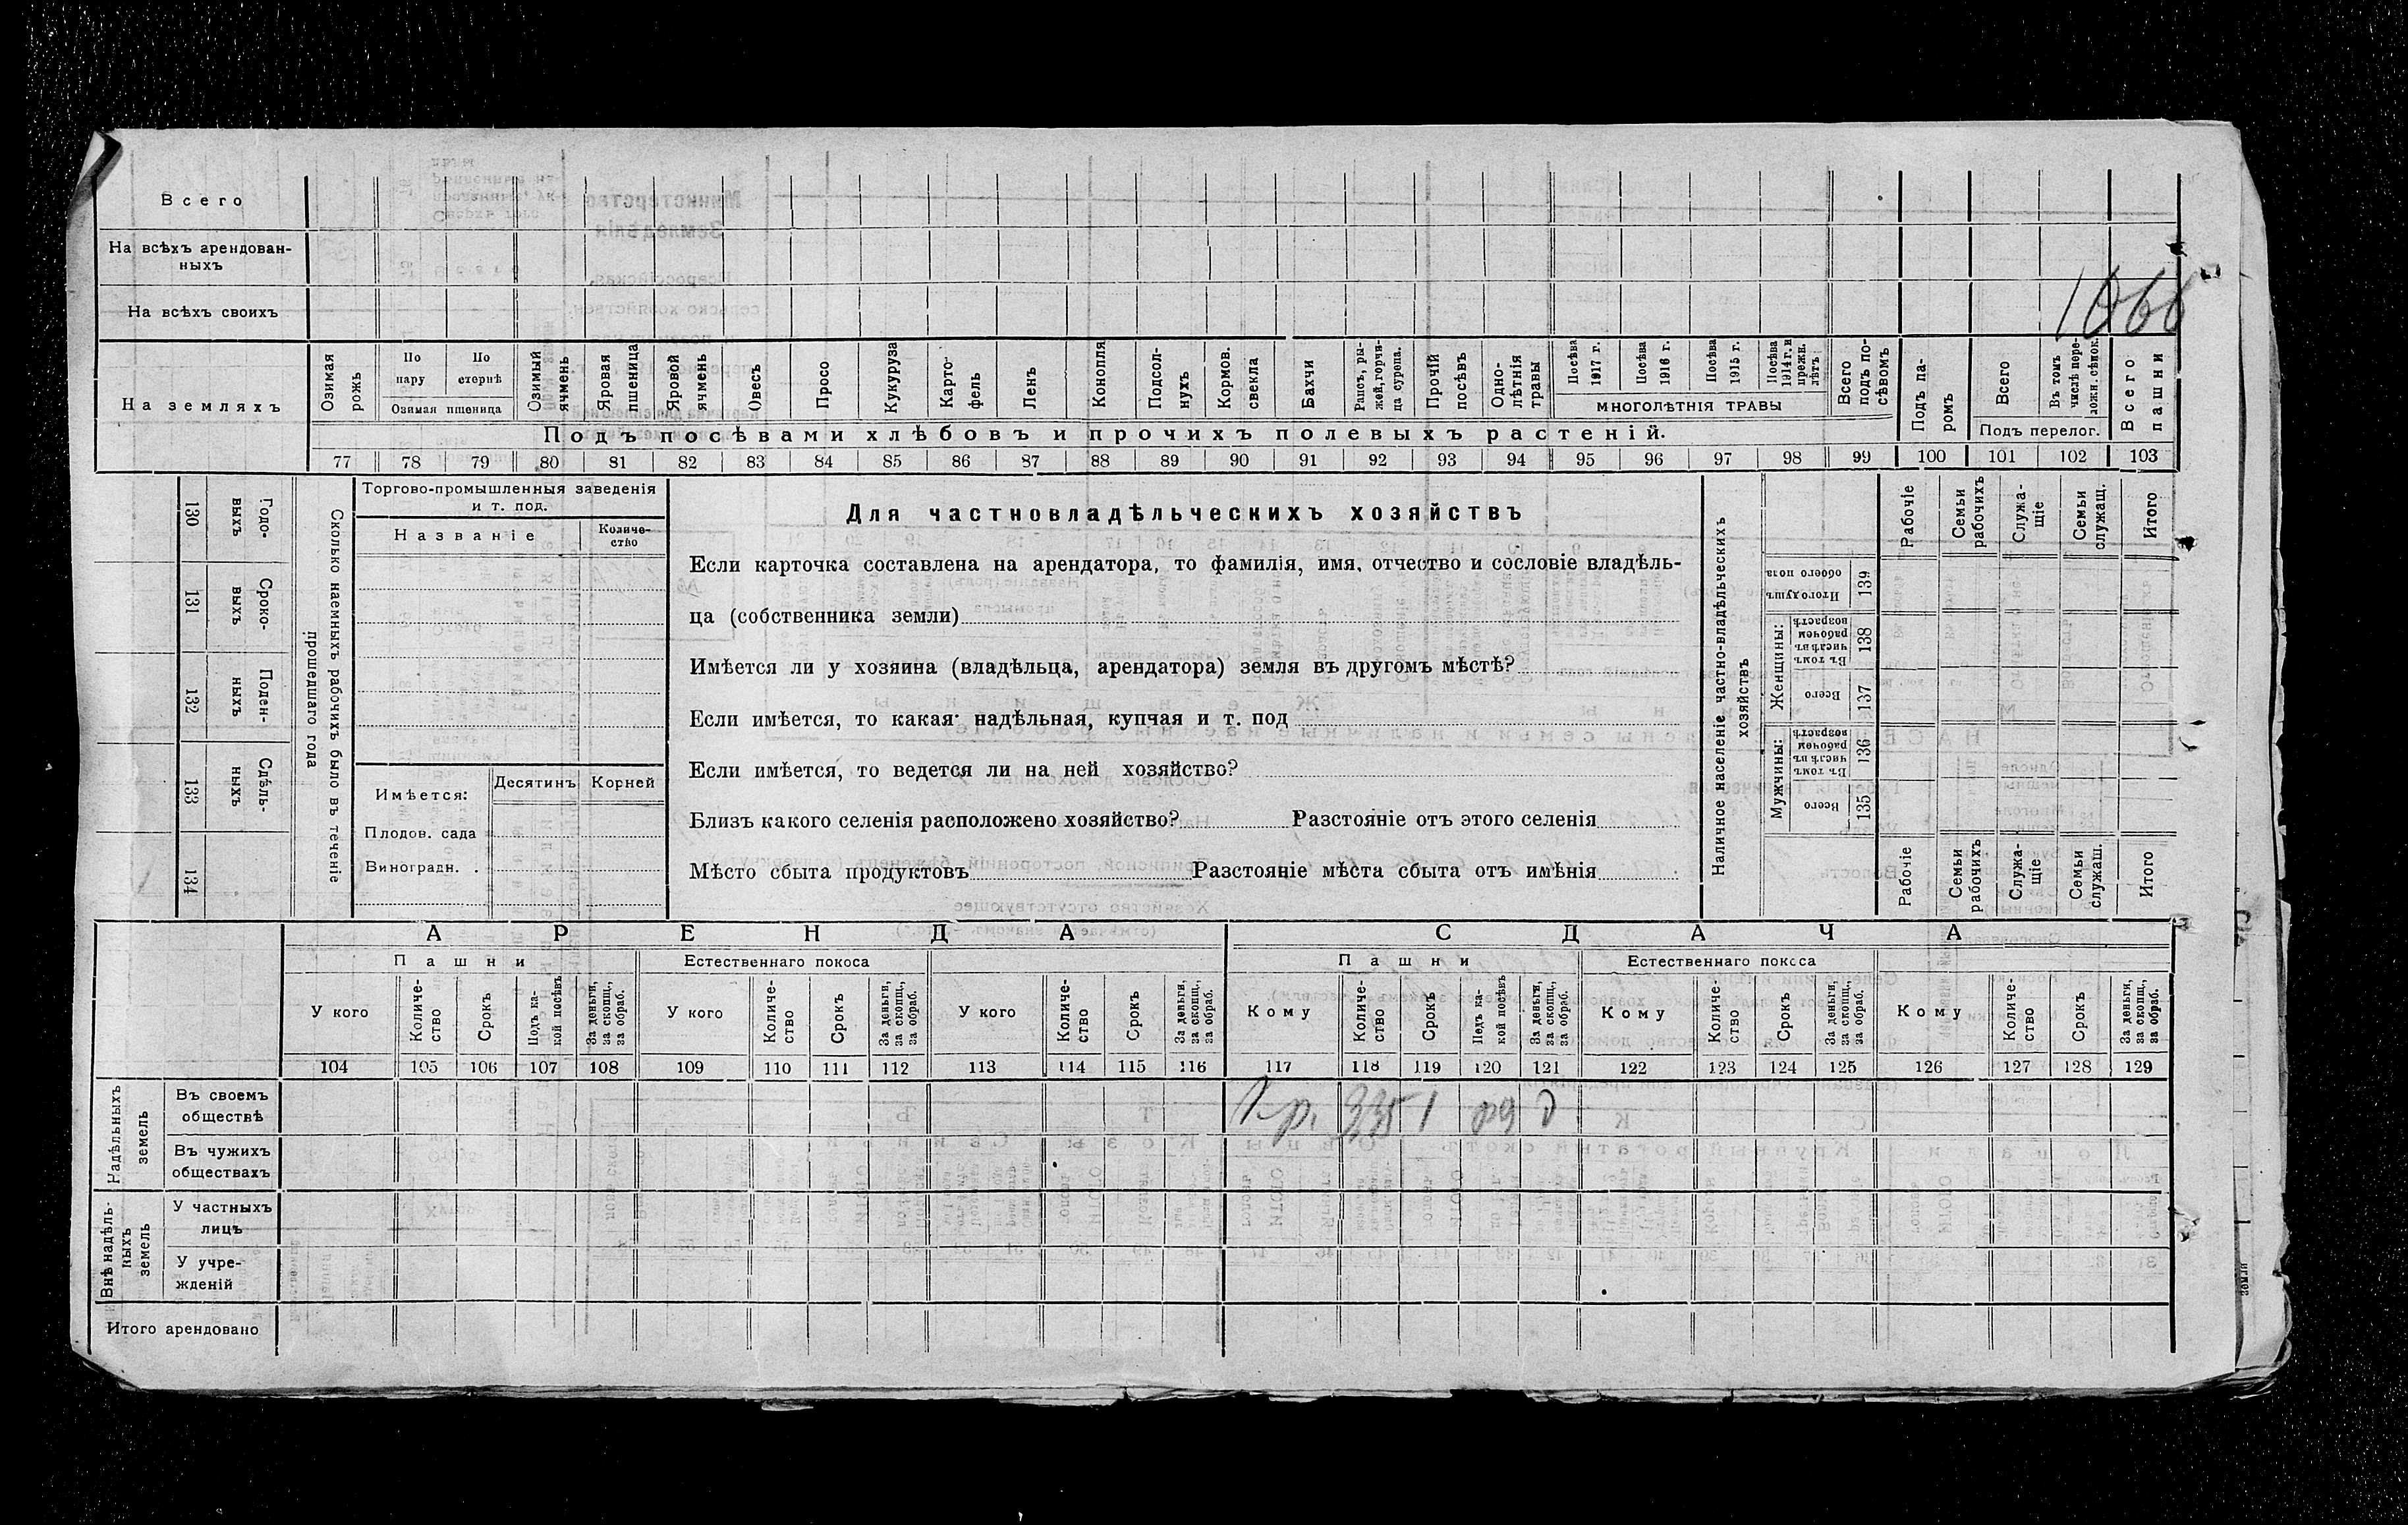 Всего
На всѣхъ арендован-
ныхъ
На всѣхъ своихъ
1066
На земляхъ
Озимая рожь
По пару
По стернѣ
Озимая пшеница
Озимый ячмень
Яровая пшеница
Яровой ячмень
Овесъ
Просо
Кукуруза
Карто-фель
Ленъ
Конопля
Подсол-нухъ
Кормов. свекла
Бахчи
Рапсъ, ры-жей, горчи-ца сурепа.
Прочій посѣвъ
Одно-лѣтнія травы
Посѣва 1917 г.
Посѣва 1916 г.
Посѣва 1915 г.
Посѣва 1914 г. и прежн. лѣтъ
МНОГОЛѢТНІЯ ТРАВЫ
Всего подъ по-сѣвомъ
Подъ па-ромъ
Всего
Въ томъ числѣ пере-ложн. сѣнок.
Подъ перелог.
Всего пашни
Подъ посѣвами хлѣбовъ и прочихъ полевыхъ растеній.
77 78 79 80 81 82 83 84 85 86 87 88 89 90 91 92 93 94 95 96 97 98 99 100 101 102 103
130 Годо-выхъ
131 Сроко-выхъ
132 Поден-ныхъ
133 Сдѣль-ныхъ
134
Сколько наемныхъ рабочихъ было въ теченіе
прошедшаго года
Торгово-промышленныя заведенія
и т. под.
Названіе
Количе-ство
Имѣется:
Десятинъ
Корней
Плодов. сада
Виноградн. .
Для частновладѣльческихъ хозяйствъ
Если карточка составлена на арендатора, то фамилія, имя, отчество и сословіе владѣль-
ца (собственника земли)
Имѣется ли у хозяина (владѣльца, арендатора) земля въ другомъ мѣстѣ?
Если имѣется, то какая: надѣльная, купчая и т. под
Если имѣется, то ведется ли на ней хозяйство?
Близъ какого селенія расположено хозяйство? Разстояніе отъ этого селенія
Мѣсто сбыта продуктовъ Разстояніе мѣста сбыта отъ имѣнія
Наличное населеніе частно-владѣльческихъ
хозяйствъ
Рабочіе
Семьи рабочихъ
Служа-щіе
Семьи служащ.
Итого
Итого душъ обоего пола 139
Женщины:
Въ томъ числѣ въ рабочемъ возрастѣ 138
Всего 137
Мужчины:
Въ томъ числѣ въ рабочемъ возрастѣ 136
Всего 135
Рабочіе
Семьи рабочихъ
Служа-щіе
Семьи служащ.
Итого
АРЕНДА
СДАЧА
Пашни
Естественнаго покоса
Пашни
Естественнаго покоса
У кого
Количе-ство
Срокъ
Подъ ка-кой посѣвъ
За деньги, за скопщ., за обраб.
У кого
Количе-ство
Срокъ
За деньги, за скопщ., за обраб.
У кого
Количе-ство
Срокъ
За деньги, за скопщ., за обраб.
Кому
Количе-ство
Срокъ
Подъ ка-кой посѣвъ
За деньги, за скопщ., за обраб.
Кому
Количе-ство
Срокъ
За деньги, за скопщ., за обраб.
Кому
Количе-ство
Срокъ
За деньги, за скопщ., за обраб.
104 105 106 107 108 109 110 111 112 113 114 115 116 117 118 119 120 121 122 123 124 125 126 127 128 129
Надѣльныхъ земель
Въ своемъ
обществѣ
1
Въ чужихъ
обществахъ
Внѣ надѣль-ныхъ земель
У частныхъ
лицъ
У учре-
жденій
Итого арендовано